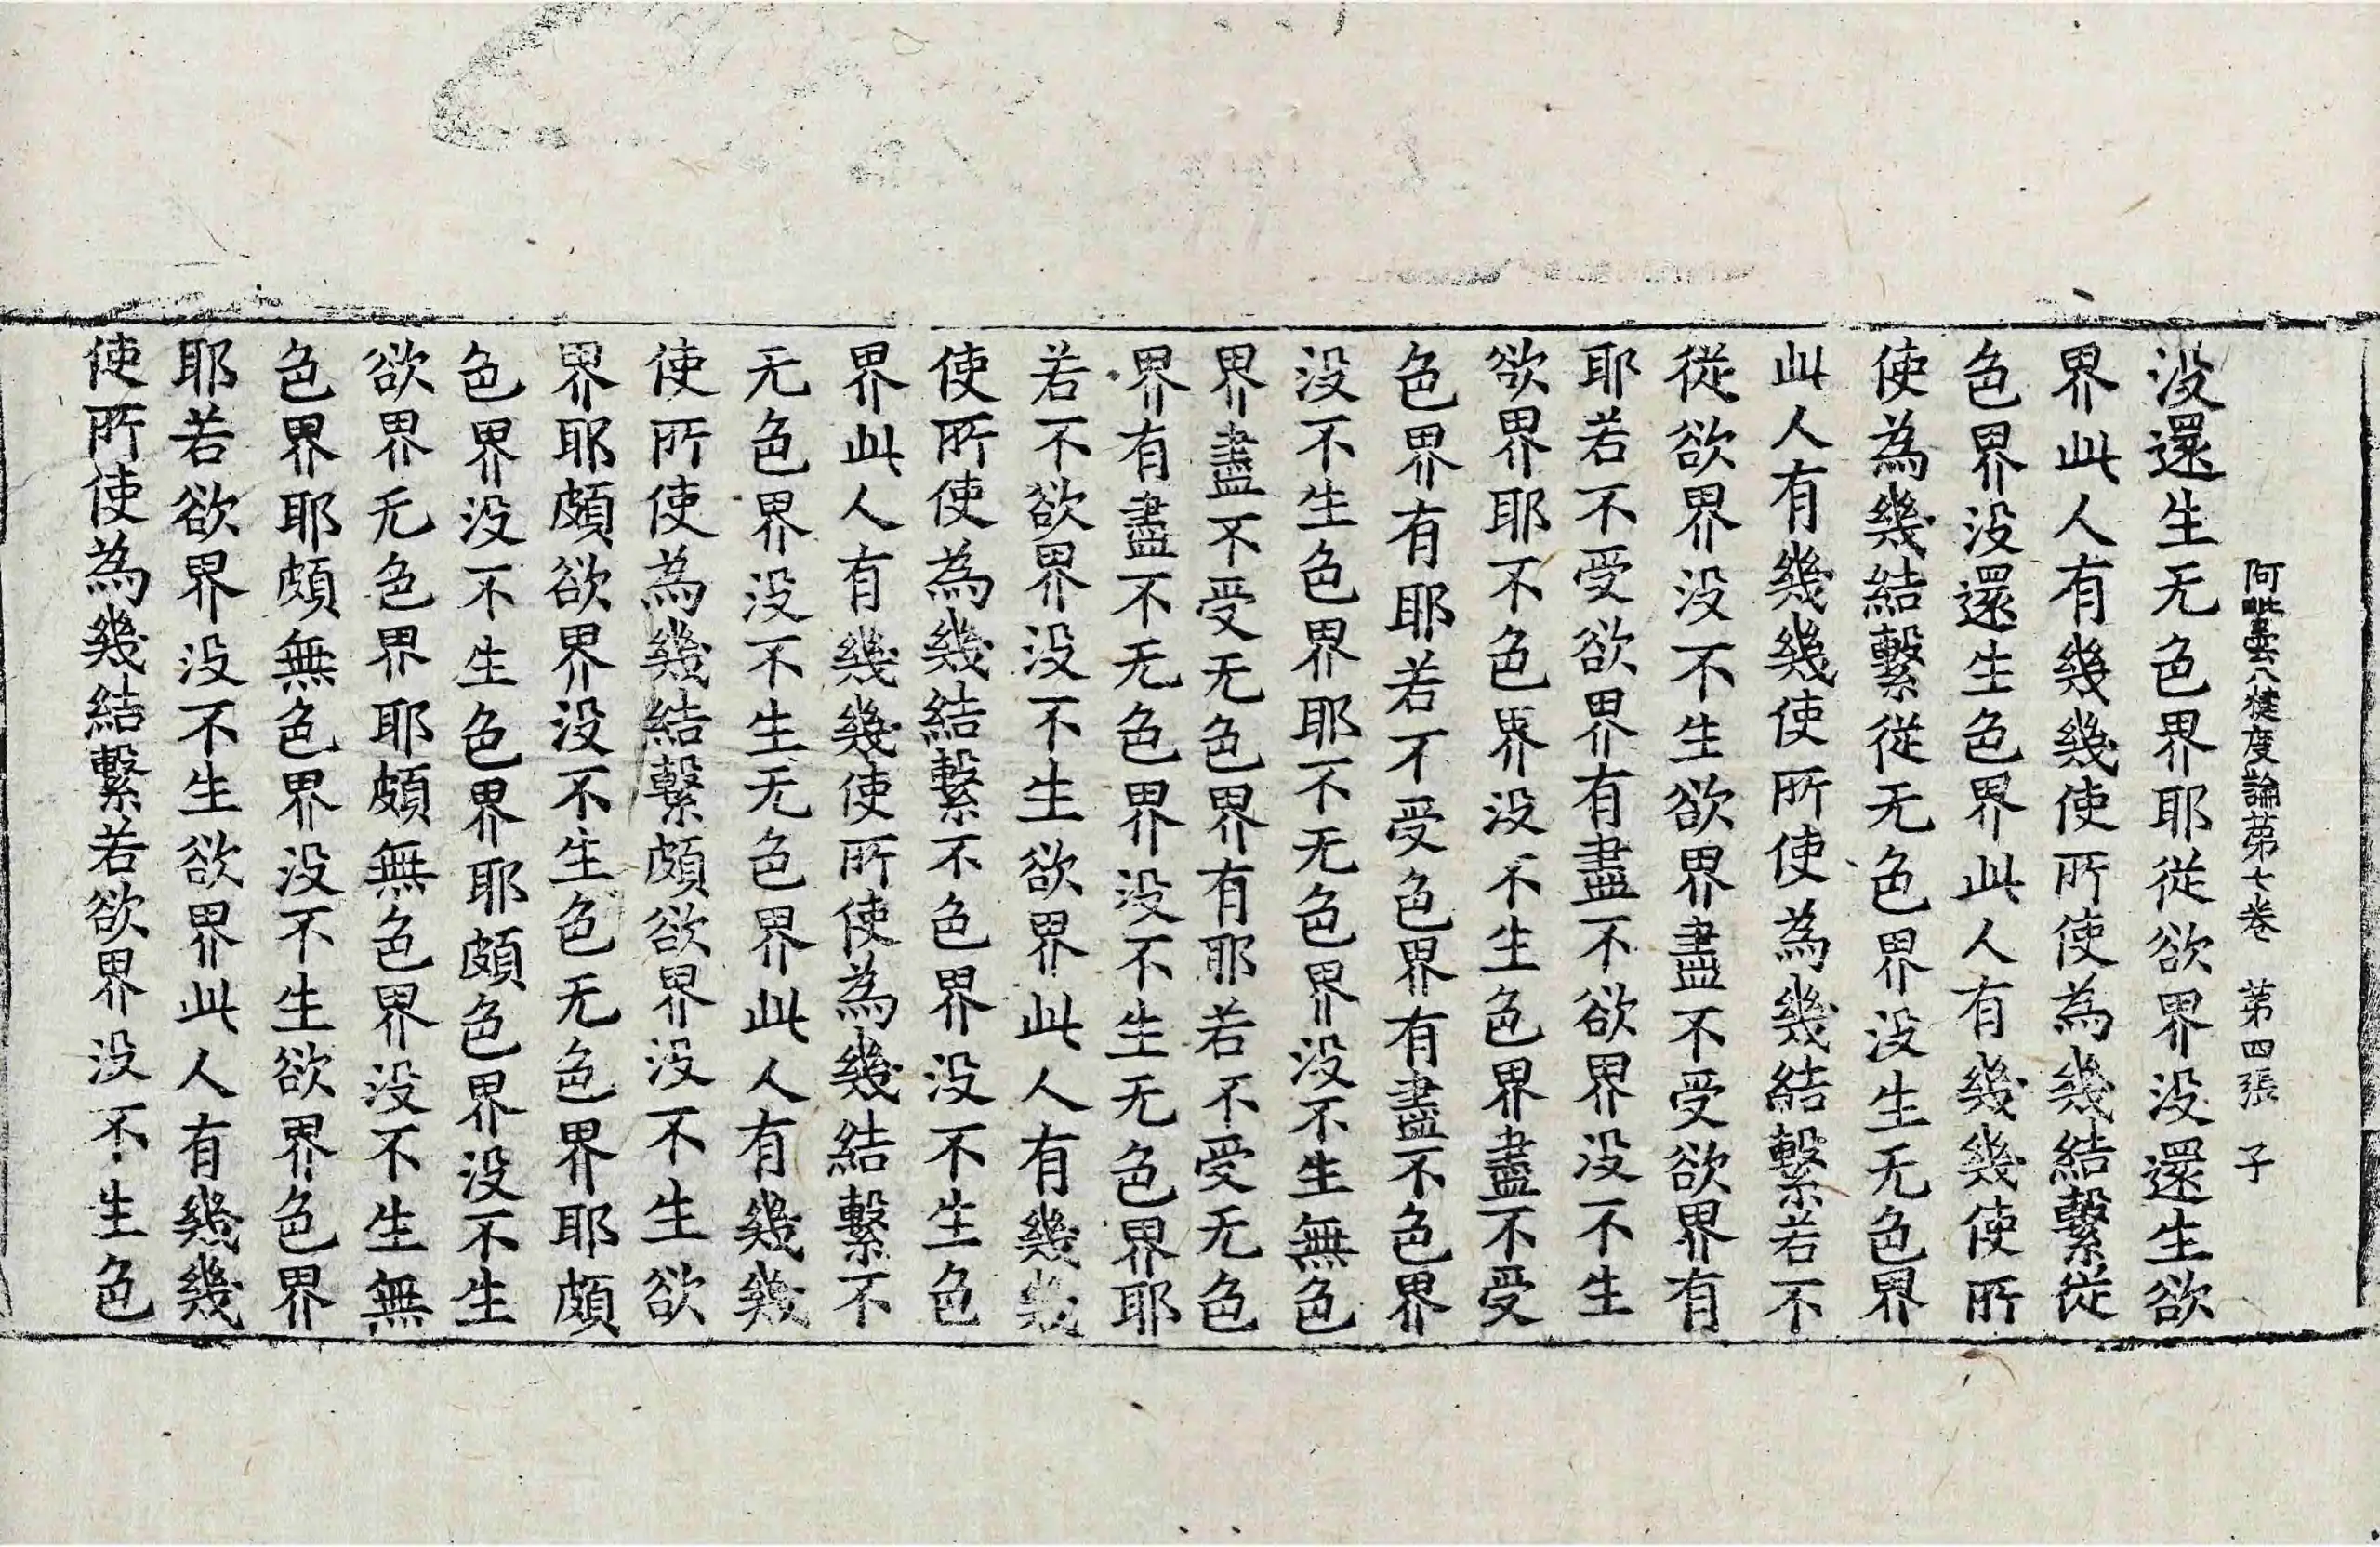 阿毗曇八犍度論苐七卷　苐四張　子
没還生无色界耶從欲界没還生欲
界此人有幾幾使所使為幾結繫從
色界没還生色界此人有幾幾使所
使為幾結繫從无色界没生无色界
此人有幾幾使所使為幾結繫若不
從欲界没不生欲界盡不受欲界有
耶若不受欲界有盡不欲界没不生
欲界耶不色界没不生色界盡不受
色界有耶若不受色界有盡不色界
没不生色界耶不无色界没不生無色
界盡不受无色界有耶若不受无色
界有盡不无色界没不生无色界耶
若不欲界没不生欲界此人有幾幾
使所使為幾結繫不色界没不生色
界此人有幾幾使所使為幾結繫不
无色界没不生无色界此人有幾幾
使所使為幾結繫頗欲界没不生欲
界耶頗欲界没不生色无色界耶頗
色界没不生色界耶頗色界没不生
欲界无色界耶頗無色界没不生無
色界耶頗無色界没不生欲界色界
耶若欲界没不生欲界此人有幾幾
使所使為幾結繫若欲界没不生色